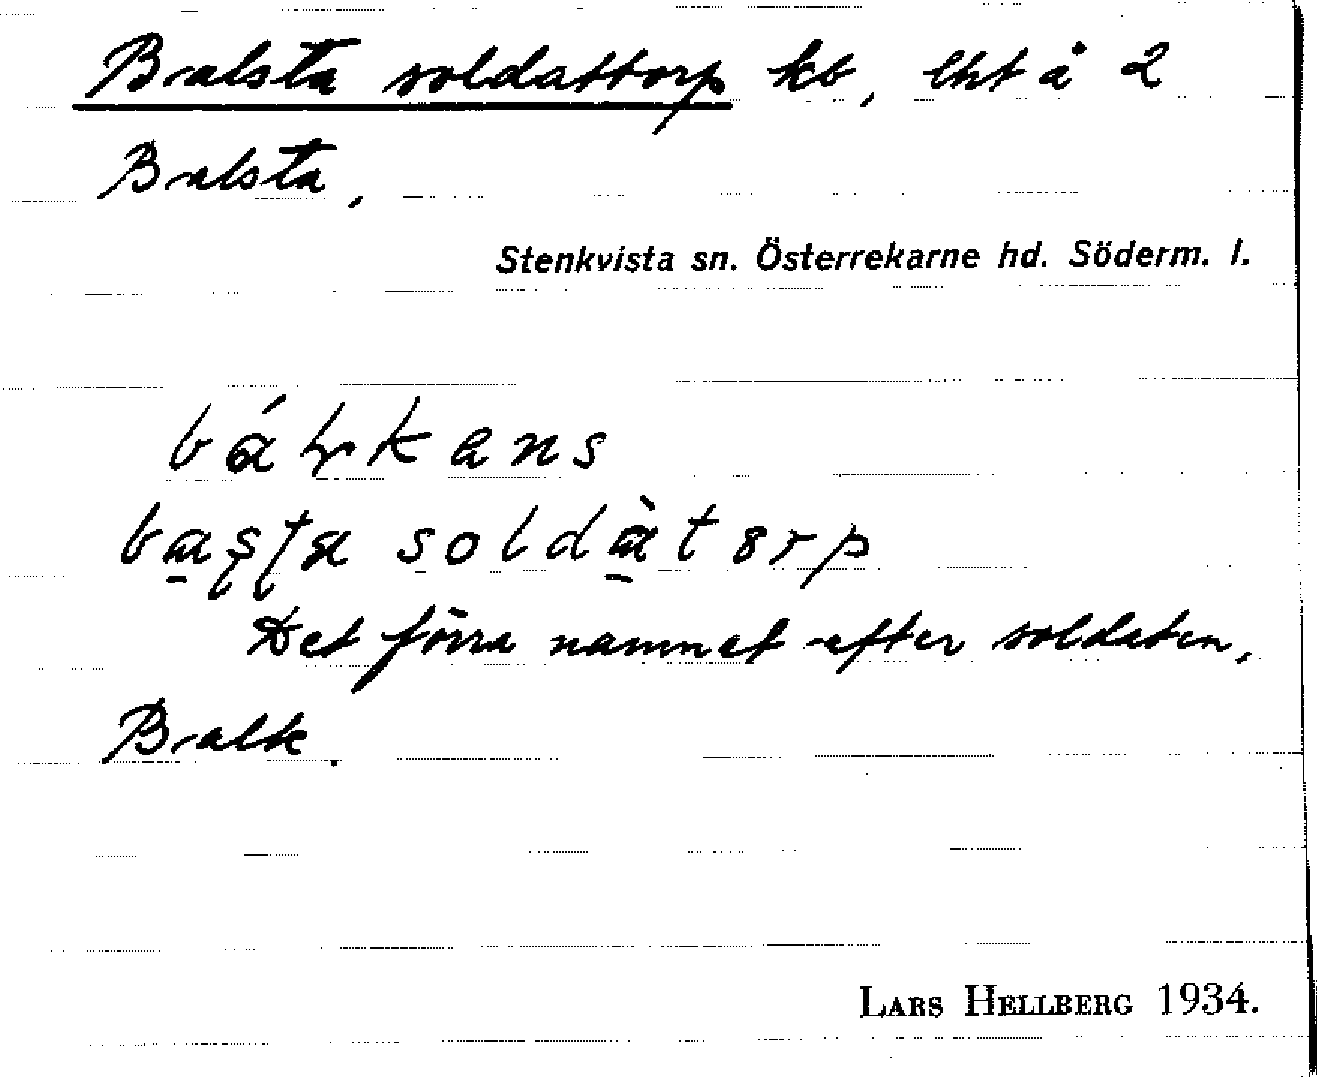 Balsta soldattorp kb, lht å 2
Balsta,
Stenkvista sn. Österrekarne hd. Söderm. l.
soldàtorp
Det förra namnet efter soldaten,
Balk.
LARS HELLBERG 1934.